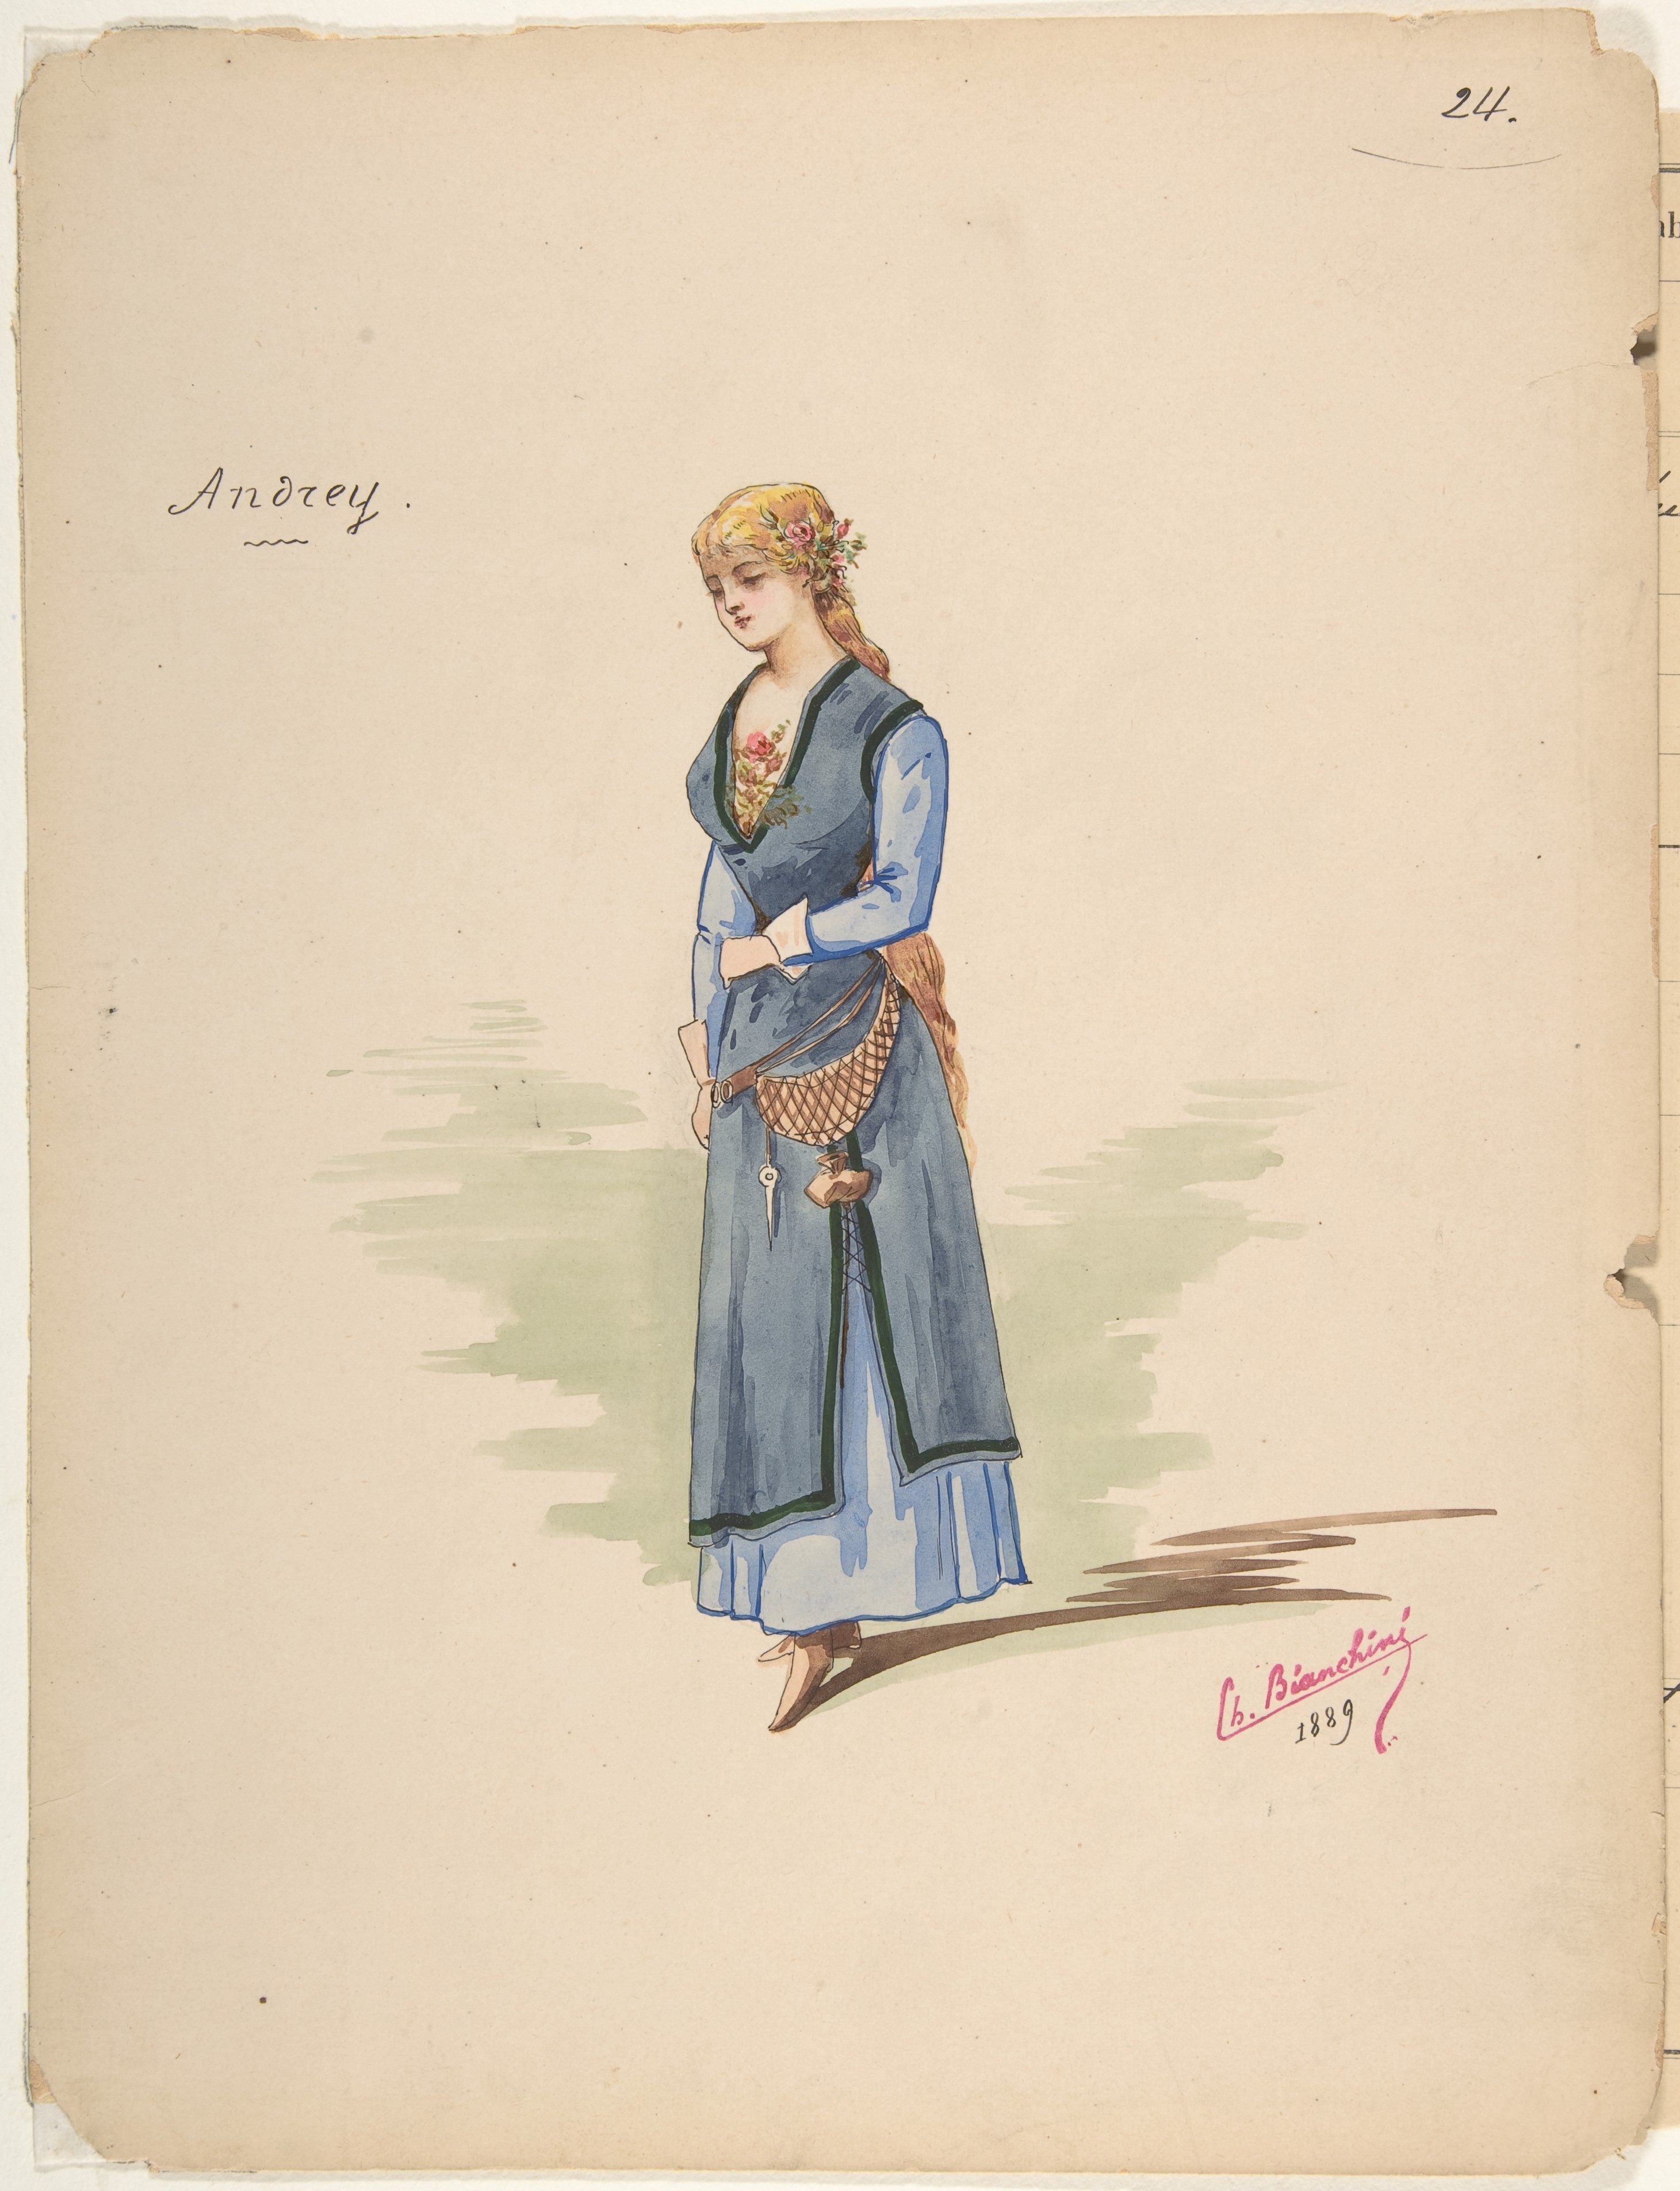 24.
Andrey.
Ch. Bianchini
1889